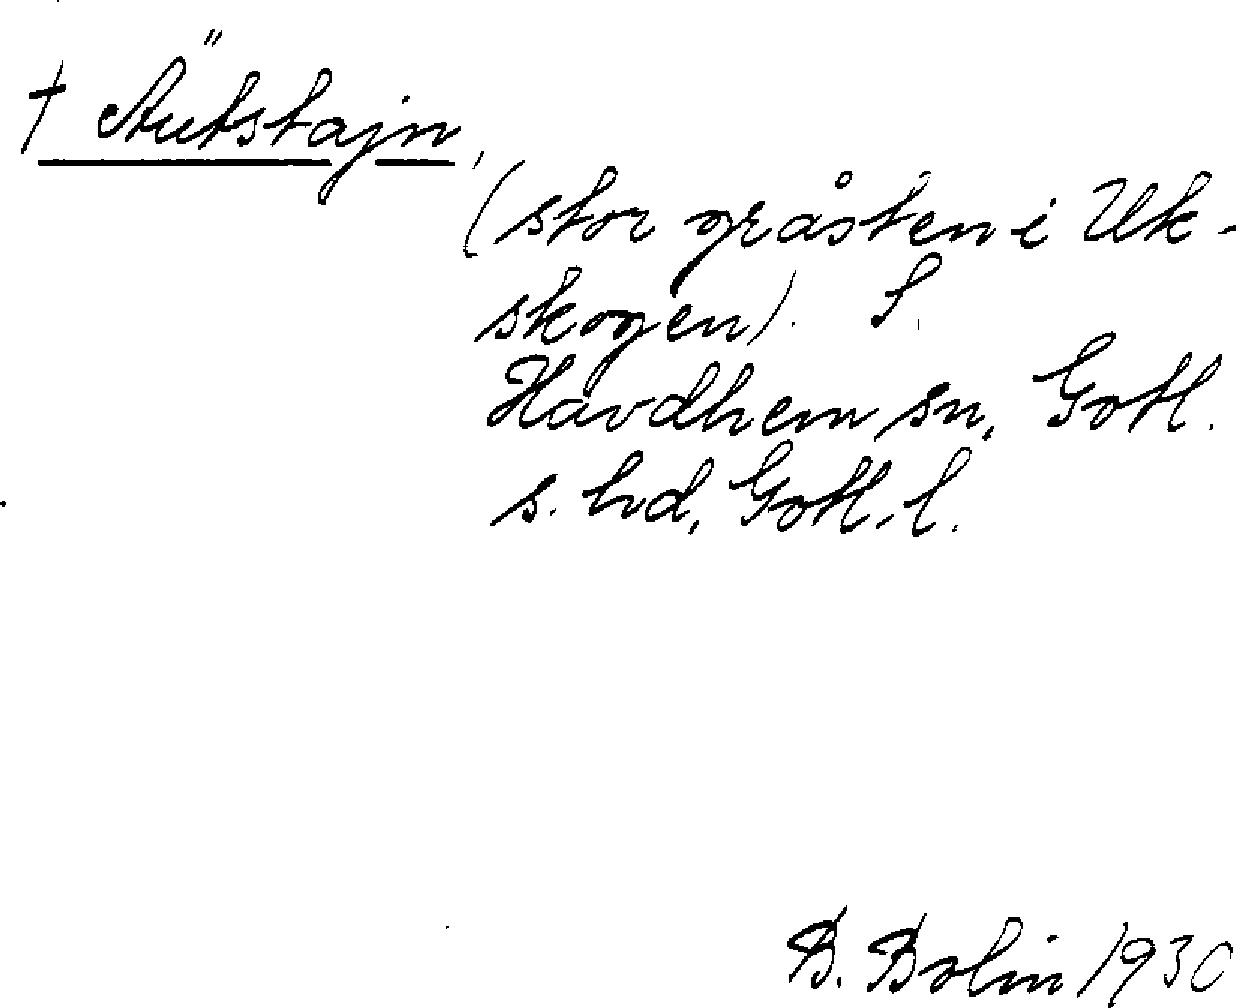 † Äutstajn,
(stor gråsten i Uk-
skogen). S.
Havdhem sn, Gotl.
s. hd, Gotl. l.
B. Bolin 1930